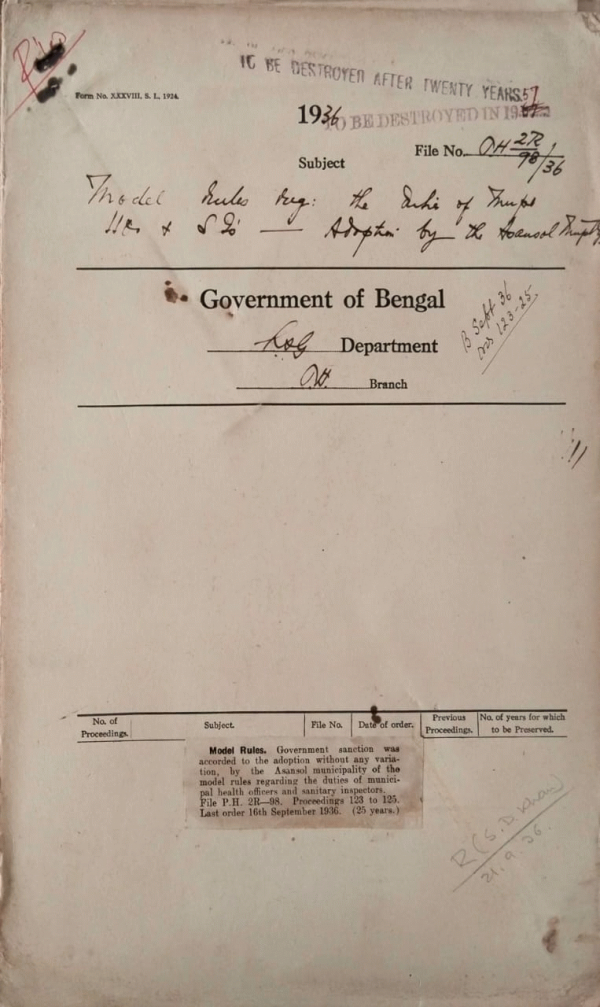 TO BE DESTROYED AFTER TWENTY YEARS
Form No. XXXVIII, S. I., 1924.
1936
TO BE DESTROYED IN 19
57
Subject
File No. PH 2R/98/36
Model Rules reg: the Duties of Mupl
HOs & SIs — Adoption by the Asansol Mupty
Government of Bengal
LSG Department
PH. Branch
B Sept 36
Nos 123-25
No. of Proceedings.
Subject.
File No.
Date of order.
Previous Proceedings.
No. of years for which to be Preserved.
Model Rules. Government sanction was
accorded to the adoption without any varia-
tion, by the Asansol municipality of the
model rules regarding the duties of munici-
pal health officers and sanitary inspectors.
File P.H. 2R—98. Proceedings 123 to 125.
Last order 16th September 1936. (25 years.)
R (S. D. Khan)
21.9.36